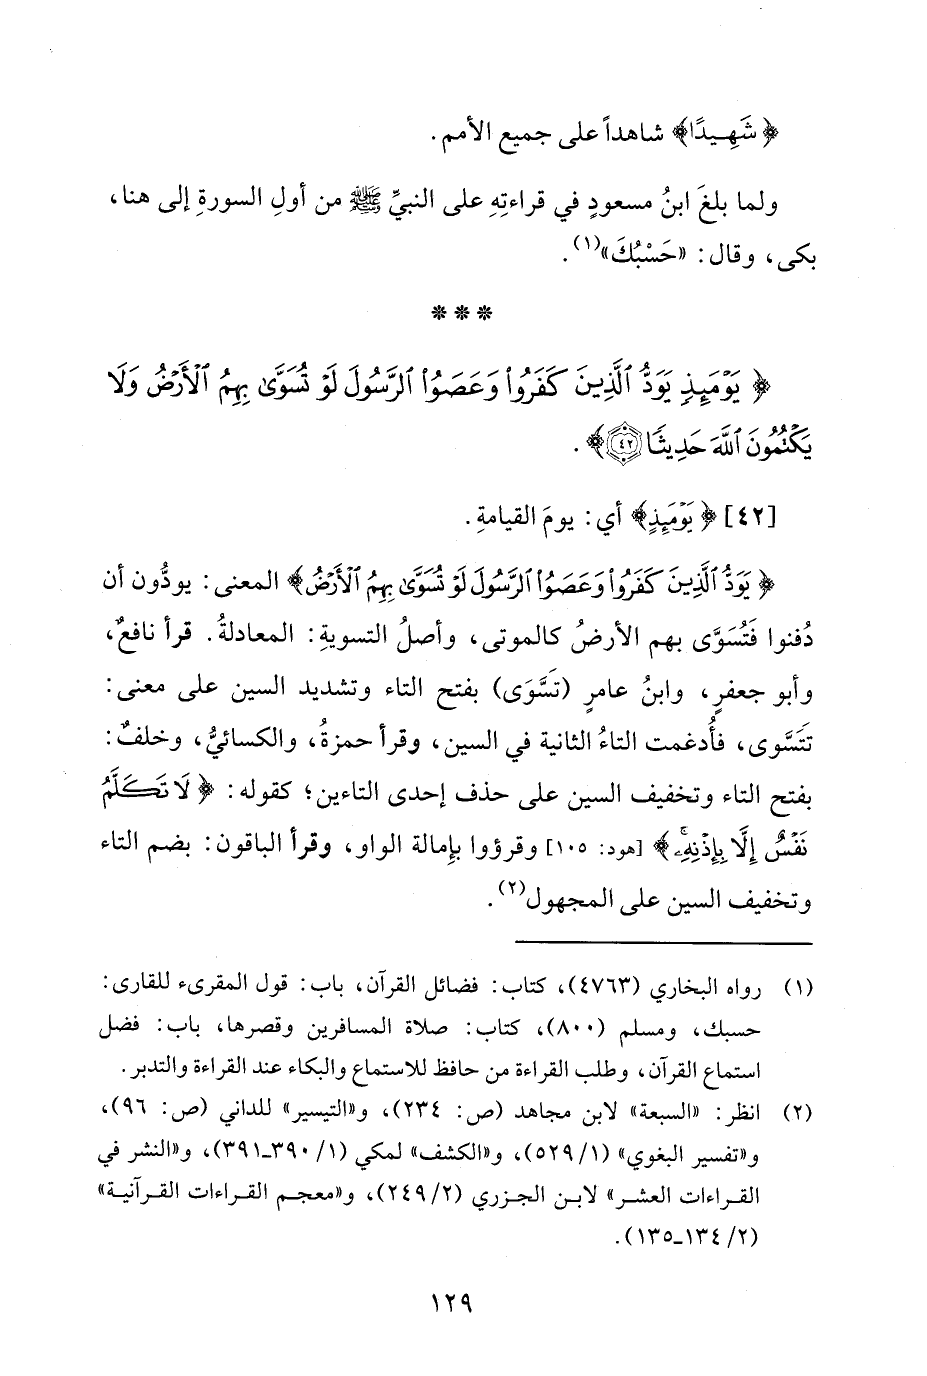 ﴿شَهِيدًا﴾ شاهداً على جميع الأمم.
ولما بلغَ ابنُ مسعودٍ في قراءتِهِ على النبيِّ ﷺ من أولِ السورةِ إلى هنا،
بكى، وقال: «حَسْبُكَ»(١).
***
﴿يَوْمَئِذٍ يَوَدُّ ٱلَّذِينَ كَفَرُوا۟ وَعَصَوُا۟ ٱلرَّسُولَ لَوْ تُسَوَّىٰ بِهِمُ ٱلْأَرْضُ وَلَا
يَكْتُمُونَ ٱللَّهَ حَدِيثًا ٤٢﴾.
[٤٢] ﴿يَوْمَئِذٍ﴾ أي: يومَ القيامةِ.
﴿يَوَدُّ ٱلَّذِينَ كَفَرُوا۟ وَعَصَوُا۟ ٱلرَّسُولَ لَوْ تُسَوَّىٰ بِهِمُ ٱلْأَرْضُ﴾ المعنى: يودُّون أن
دُفنوا فَتُسَوَّى بهم الأرضُ كالموتى، وأصلُ التسويةِ: المعادلةُ. قرأ نافعٌ،
وأبو جعفرٍ، وابنُ عامرٍ (تَسَّوَى) بفتح التاء وتشديد السين على معنى:
تتَسَّوى، فأُدغمت التاءُ الثانية في السين، وقرأ حمزةُ، والكسائيُّ، وخلفٌ:
بفتح التاء وتخفيف السين على حذف إحدى التاءين؛ كقوله: ﴿لَا تَكَلَّمُ
نَفْسٌ إِلَّا بِإِذْنِهِۦۚ﴾ [هود: ١٠٥] وقرؤوا بإمالة الواو، وقرأ الباقون: بضم التاء
وتخفيف السين على المجهول(٢).
(١) رواه البخاري (٤٧٦٣)، كتاب: فضائل القرآن، باب: قول المقرىء للقارى:
حسبك، ومسلم (٨٠٠)، كتاب: صلاة المسافرين وقصرها، باب: فضل
استماع القرآن، وطلب القراءة من حافظ للاستماع والبكاء عند القراءة والتدبر.
(٢) انظر: «السبعة» لابن مجاهد (ص: ٢٣٤)، و«التيسير» للداني (ص: ٩٦)،
و«تفسير البغوي» (١/ ٥٢٩)، و«الكشف» لمكي (١/ ٣٩٠ـ٣٩١)، و«النشر في
القراءات العشر» لابن الجزري (٢/ ٢٤٩)، و«معجم القراءات القرآنية»
(٢/ ١٣٤ـ١٣٥).
١٢٩